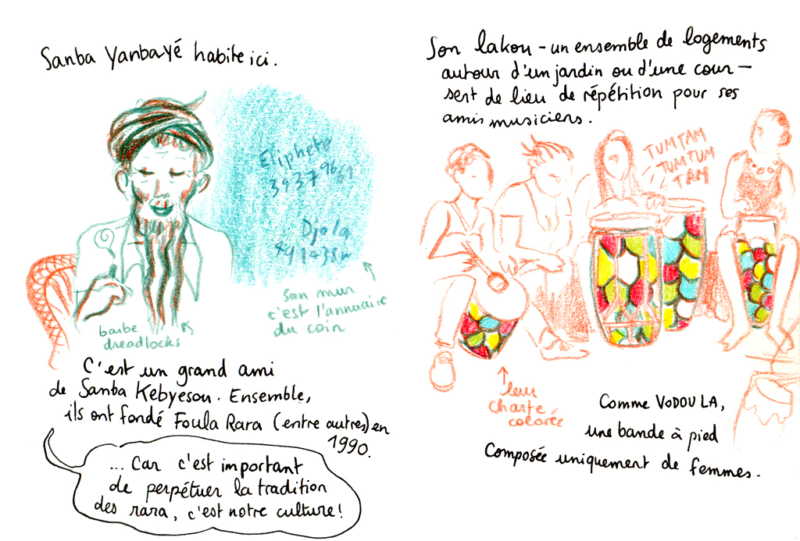 Sanba Yanbayé habite ici.
Eliphete
3937
Djola
son mur
c'est l'annuaire
du coin
barbe
dreadlocks
C'est un grand ami
de Sanba Kebyesou. Ensemble,
ils ont fondé Foula Rara (entre autres) en
1990.
... Car c'est important
de perpétuer la tradition
des rara, c'est notre culture!
Son lakou - un ensemble de logements
autour d'un jardin ou d'une cour -
sert de lieu de répétition pour ses
amis musiciens.
TUMTAM
TUMTUM
TAM
leur
charte
colorée
Comme VODOULA,
une bande à pied
composée uniquement de femmes.